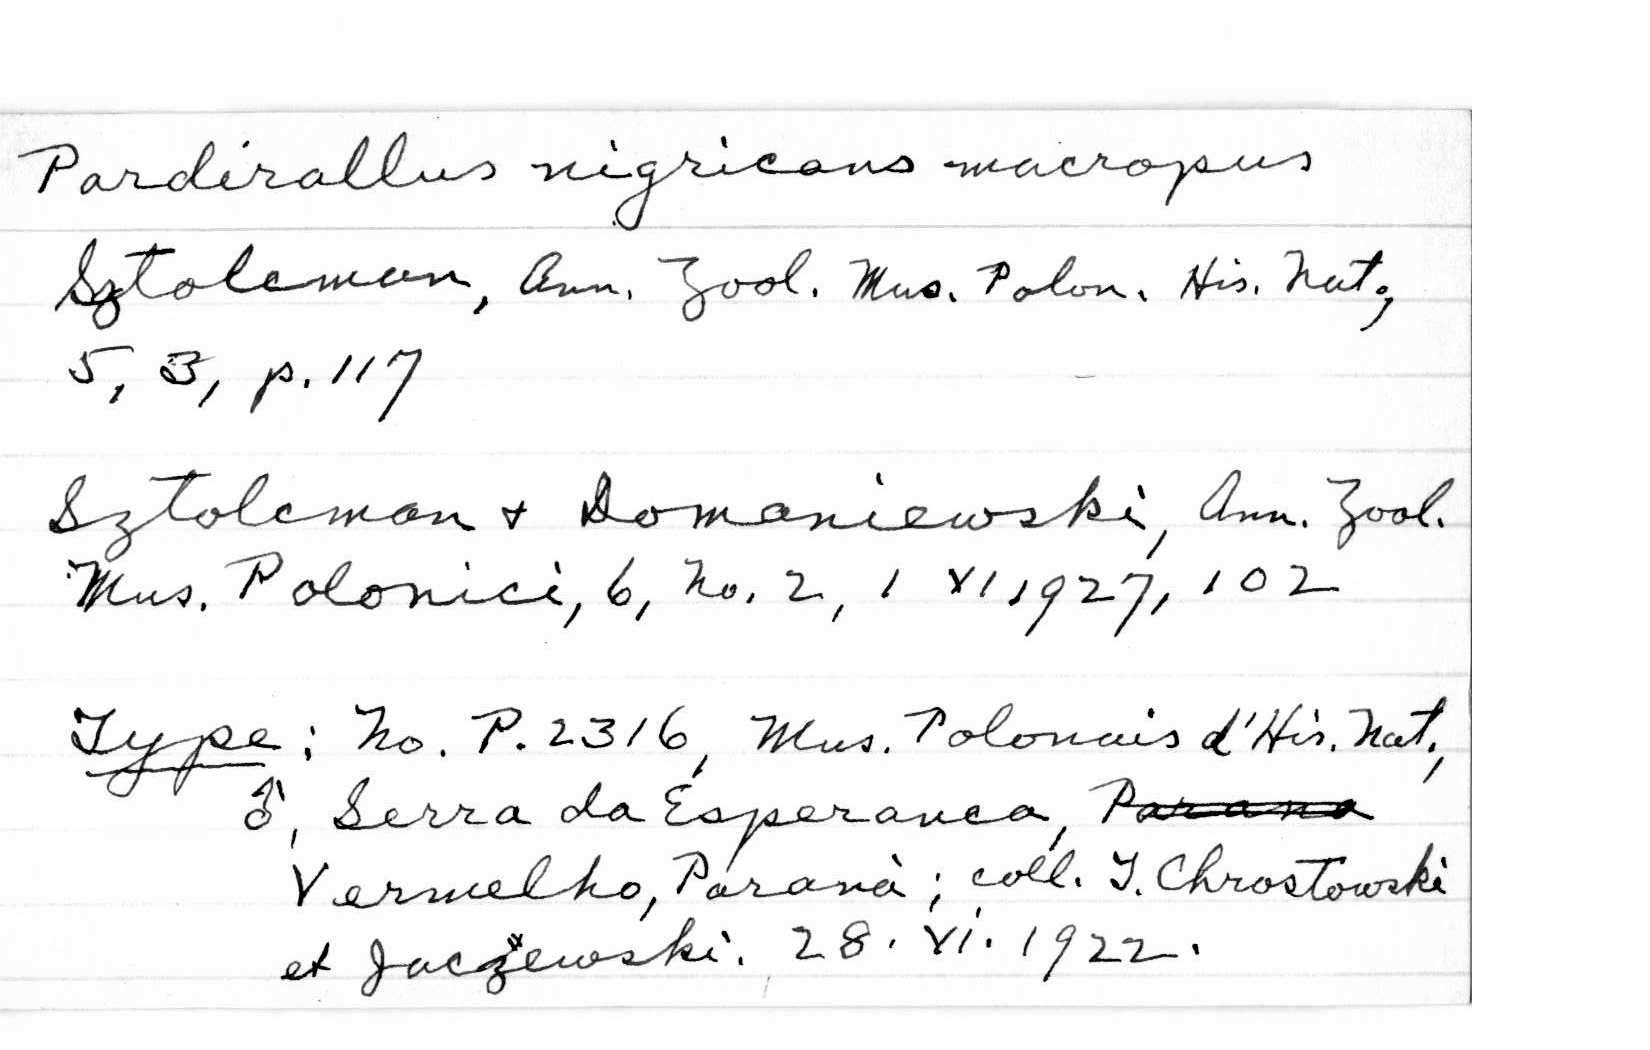 Pardirallus nigricans macropus
Sztolcman, Ann. Zool. Mus. Polon. His. Nat.,
5, 3, p. 117
Sztolcman & Domaniewski, Ann. Zool.
Mus. Polonici, 6, No. 2, 1 XI 1927, 102
Type: No. P. 2316, Mus. Polonais d'His. Nat.,
♂, Serra da Esperanca, Parana
Vermelho, Paraná; coll. T. Chrostowski
et Jaczewski. 28. XI. 1922.